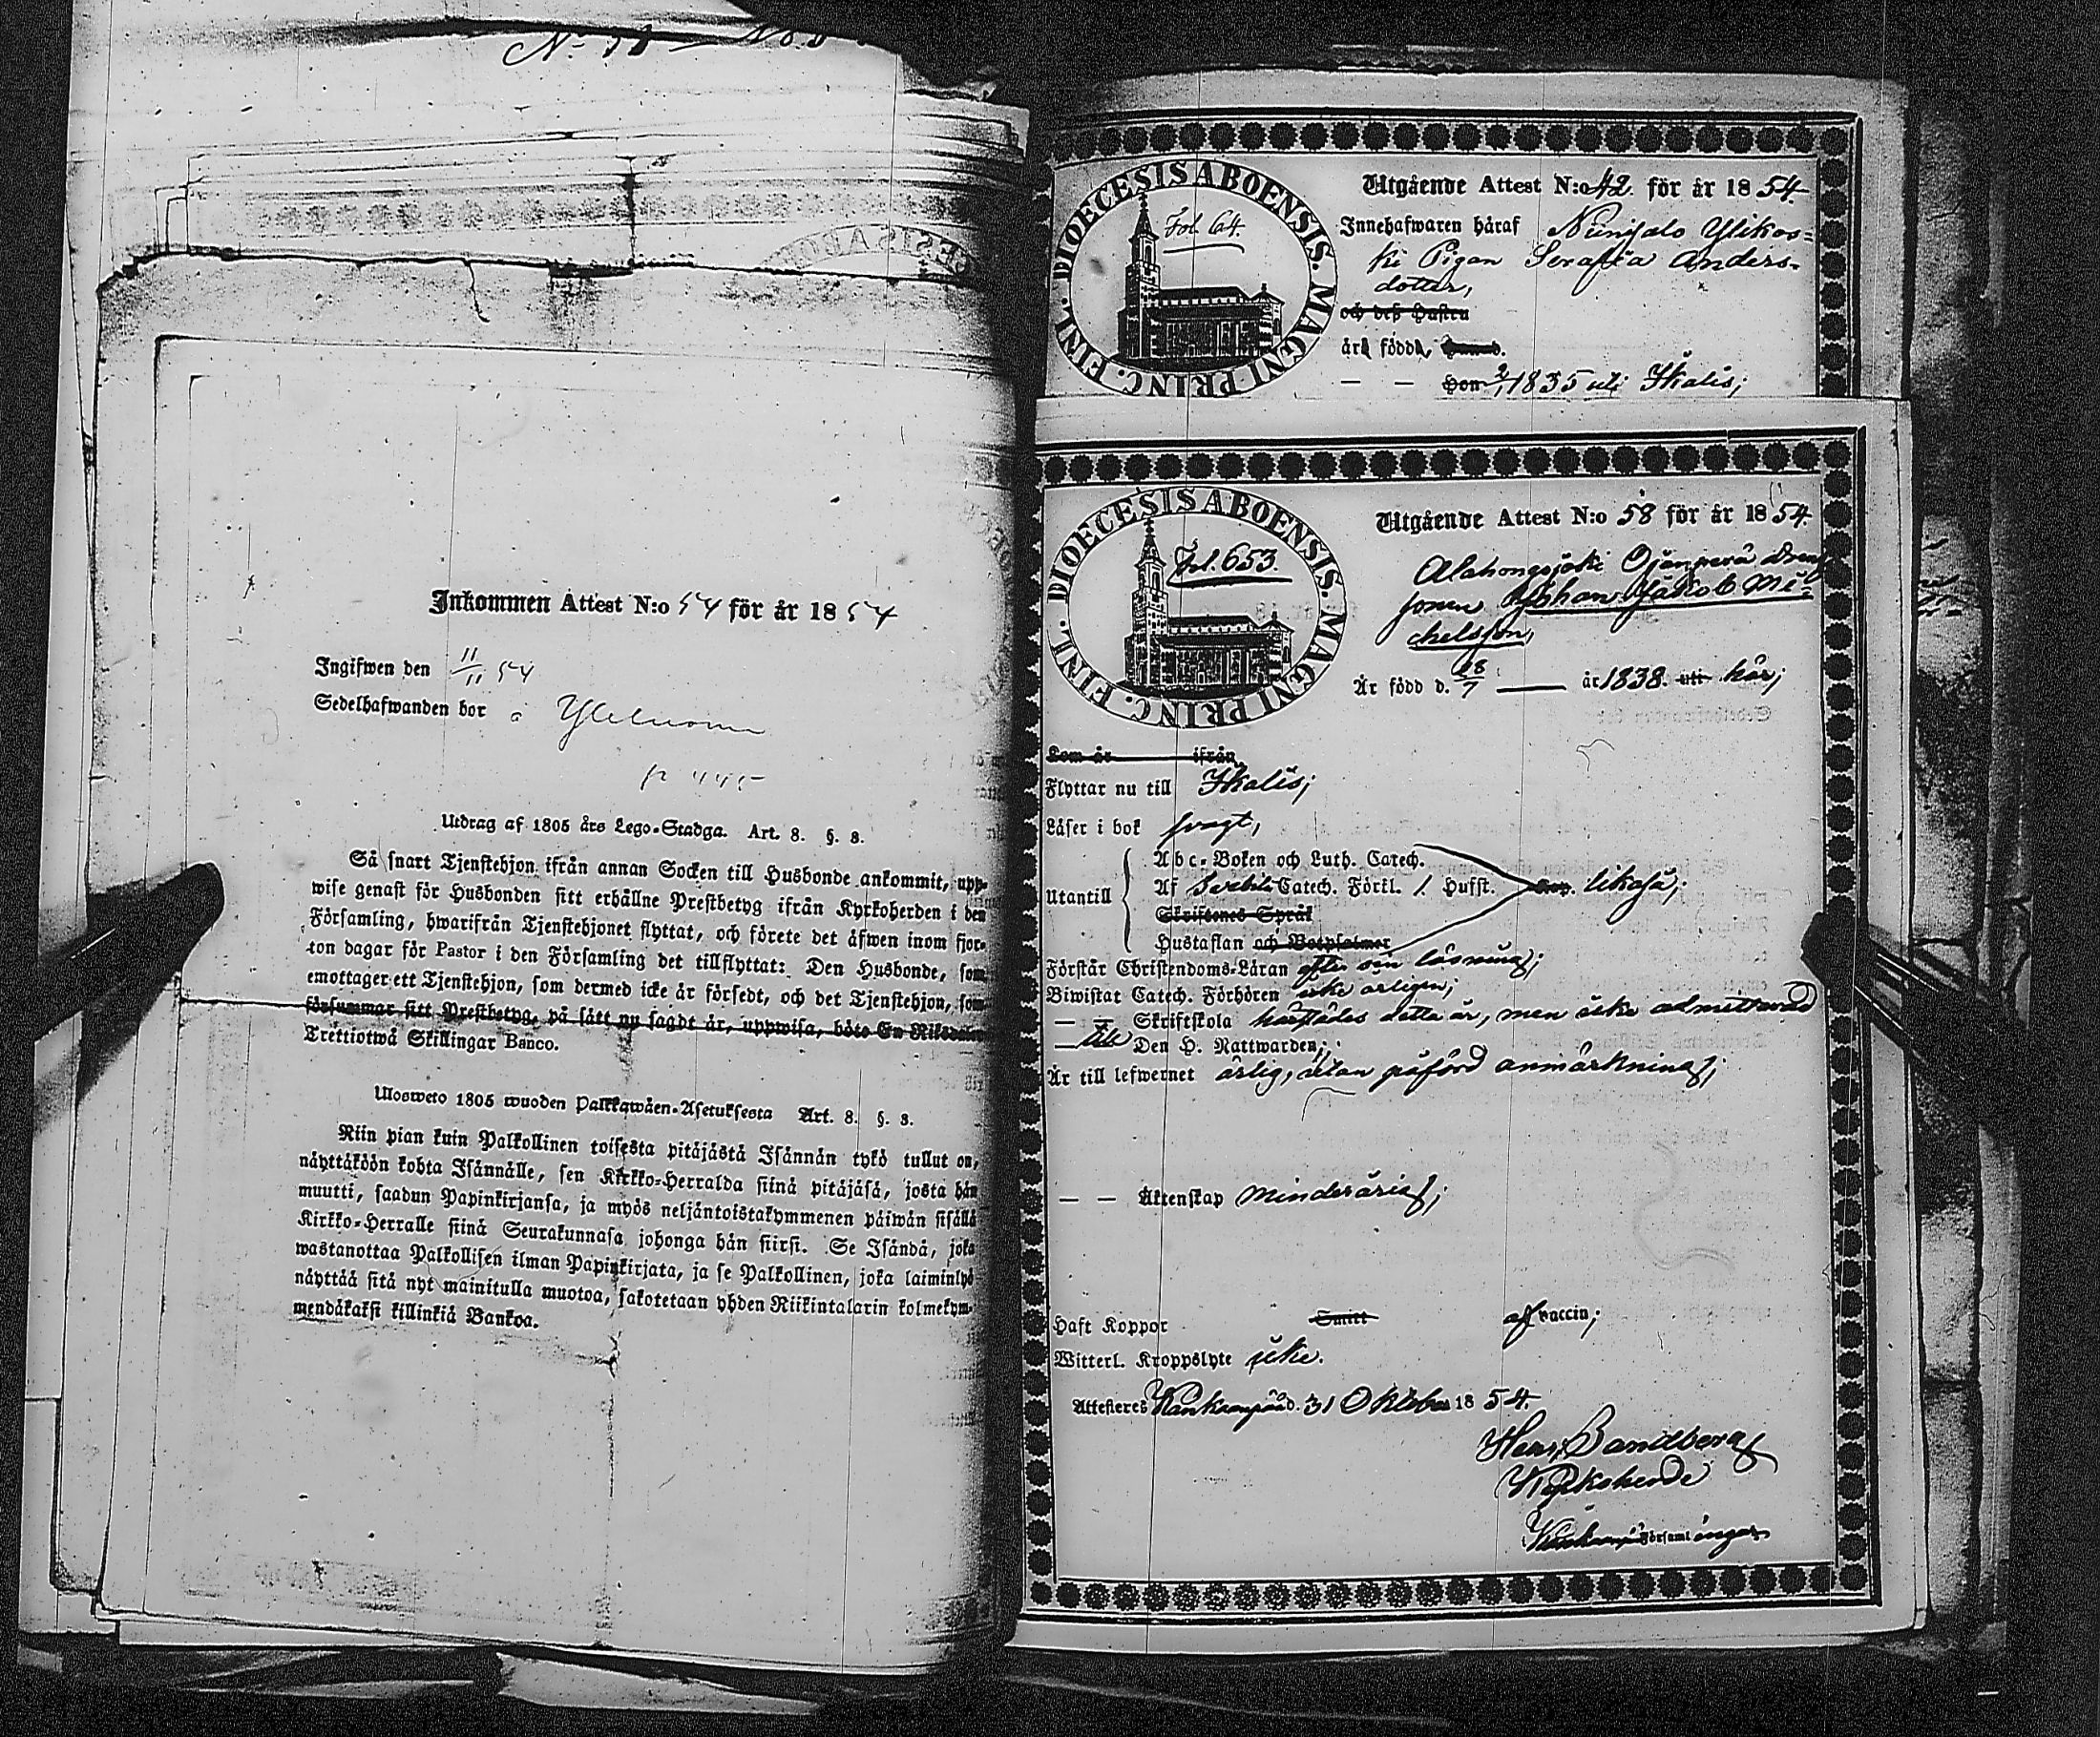 Inkommen Attest N:o 54 för år 1854
Ingifwen den 11/11 54
Sedelhafwanden bor å
p 445
Utdrag af 1805 års Lego-Stadga. Art. 8. §. 3.
Så snart Tjenstehjon ifrån annan Socken till Husbonde ankommit, upp-
wise genast för Husbonden sitt erhållne Prestbetyg ifrån Kyrkoherden i den
Församling, hwarifrån Tjenstehjonet flyttat, och förete det äfwen inom fjor-
ton dagar för Pastor i den Församling det tillflyttat: Den Husbonde, som
emottager ett Tjenstehjon, som dermed icke är försedt, och det Tjenstehjon, som
försummar sitt Prestbetyg, på sätt nu sagdt är, uppwisa, böte En Riksdaler
Trettiotwå Skillingar Banco.
Ulosweto 1805 wuoden Palkkawäen-Asetuksesta Art. 8. §. 3.
Niin pian kuin Palkollinen toisesta pitäjästä Isännän tykö tullut on,
näyttäköön kohta Isännälle, sen Kirkko-Herralda siinä pitäjäsä, josta hän
muutti, saadun Papinkirjansa, ja myös neljäntoistakymmenen päiwän sisällä
Kirkko-Herralle siinä Seurakunnasa johonga hän siirsi. Se Isändä, joka
wastanottaa Palkollisen ilman Papinkirjata, ja se Palkollinen, joka laiminlyö
näyttää sitä nyt mainitulla muotoa, sakotetaan yhden Riikintalarin kolmekym-
mendäkaksi killinkiä Bankoa.
DIOECESIS ABOENSIS. MAGNI PRINC. FINL.
Fol. 64.
Utgående Attest N:o 42. för år 1854.
Innehafwaren häraf Ylikos-
ki Pigan Serafia Anders-
dotter,
och deß Hustru
är född,
— — Hon 2/1 1835 uti Ikalis;
DIOECESIS ABOENSIS. MAGNI PRINC. FINL.
Fol. 653.
Utgående Attest N:o 58 för år 1854.
Alahongajoki Ojanperä Dreng
sonen Johan Jakob Mi-
chelsson,
Är född d. 28/7 — år 1838. uti här;
Kom år ifrån
Flyttar nu till Ikalis;
Läser i bok swagt,
Utantill
Abc-Boken och Luth. Catech.
Af Svebilii Catech. Förkl. 1. Hufst. likaså;
Skriftenes Språk
Hustaflan och Botpsalmer
Förstår Christendoms-Läran efter sin läsning;
Biwistat Catech. Förhören icke årligen;
— — Skriftskola härstädes detta år, men icke admitterad
— till Den H. Nattwarden;
Är till lefwernet ärlig, utan påförd anmärkning;
— — Äktenskap minderårig;
Haft Koppor Smitt af vaccin;
Witterl. Kroppslyte icke.
Attesteres Kankaanpää d. 31 Oktober 1854.
Sandberg
Kyrkoherde
Församl